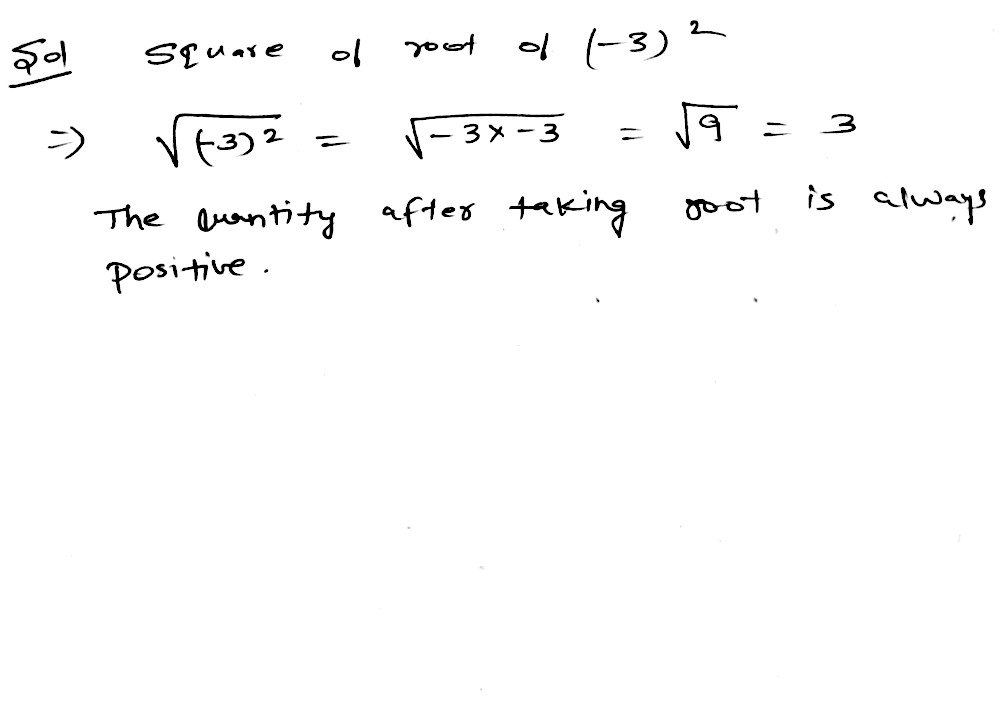 Sol Square of root of (-3)²
=> √(-3)² = √-3×-3 = √9 = 3
The quantity after taking root is always
positive.